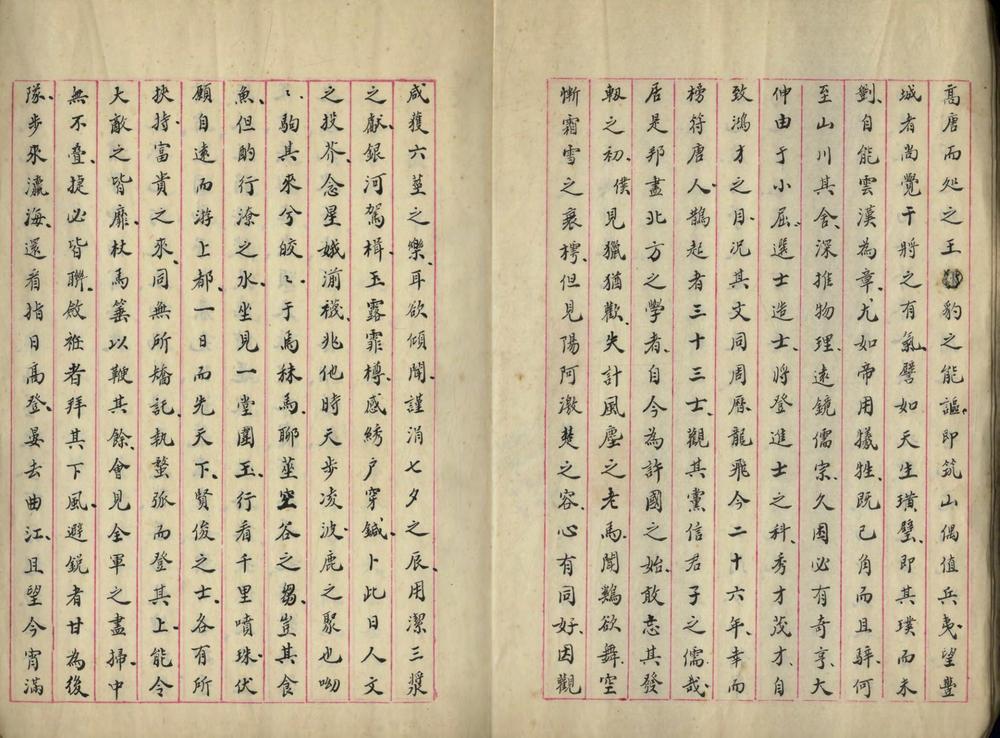 高唐而処之王豹之能謳即筑山偶值兵夷望豐
城者尚覺干將之有氣譬如天生璜璧即其璞而未
劙自能雲漢為章尤如帝用犠牲既已角而且騂何
至山川其舍深推物理遠鏡儒宗久困必有奇亨大
伸由于小屈選士造士將登進士之科秀才茂才自
致鴻才之目况其文同周歷龍飛今二十六年幸而
榜符唐人鵲起者三十三士觀其黨信君子之儒哉
居是邦盡北方之學者自今為許國之始敢忘其發
軔之初僕見獵猶歡失計風塵之老馬聞鷄欲舞空
慚霜雪之裹樗但見陽阿激楚之容心有同好因觀
咸獲六莖之樂耳欲傾聞謹涓七夕之辰用潔三漿
之獻銀河駕楫玉露霏樽感綉户穿鍼卜此日人文
之投芥念星娥湔襪兆他時天步凌波鹿之聚也呦
〻駒其來兮皎〻于焉秣馬聊莝空谷之芻豈其食
魚但酌行潦之水坐見一堂團玉行看千里噴珠伏
願自遠而游上都一日而先天下賢俊之士各有所
挾持富貴之來同無所矯託執蝥弧而登其上能令
大敵之皆靡杖馬箠以鞭其餘會見全軍之盡掃中
無不疊捷必皆聯斂袵者拜其下風避銳者甘為後
隊步來瀛海還看指日高登晏去曲江且望今宵滿